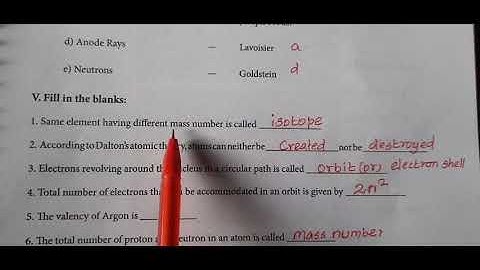 d) Anode Rays — Lavoisier a
e) Neutrons — Goldstein d
V. Fill in the blanks:
1. Same element having different mass number is called isotope
2. According to Dalton's atomic y, atoms can neither be Created nor be destroyed
3. Electrons revolving around the nucleus in a circular path is called orbit (or) electron shell
4. Total number of electrons that can be accommodated in an orbit is given by 2n²
5. The valency of Argon is
6. The total number of proton and neutron in an atom is called mass number